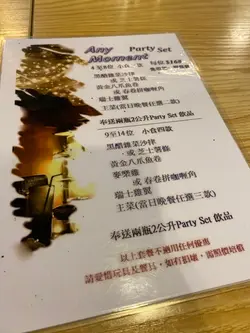 Any Moment
Party Set
4至8位 小食二款 每位$168
黑醋雞菜沙律
或 芝士薯條
黃金八爪魚卷
或 春卷拼咖喱角
瑞士雞翼
主菜(當日晚餐任選二款)
奉送兩瓶2公升Party Set 飲品
9至14位 小食四款
黑醋雞菜沙律
或 芝士薯條
黃金八爪魚卷
麥樂雞
或 春卷拼咖喱角
瑞士雞翼
主菜(當日晚餐任選三款)
奉送兩瓶2公升Party Set 飲品
以上套餐不適用任何優惠
請愛惜玩具及餐具，如有損壞，需照價賠償